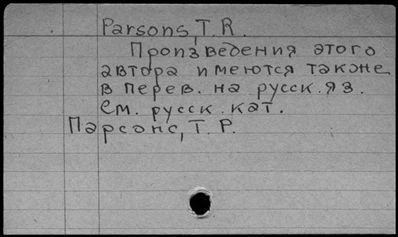 Parsons, T. R.
Произведения этого
автора имеются также
в перев. на русск. яз.
См. русск. кат.
Парсонс, Т. Р.